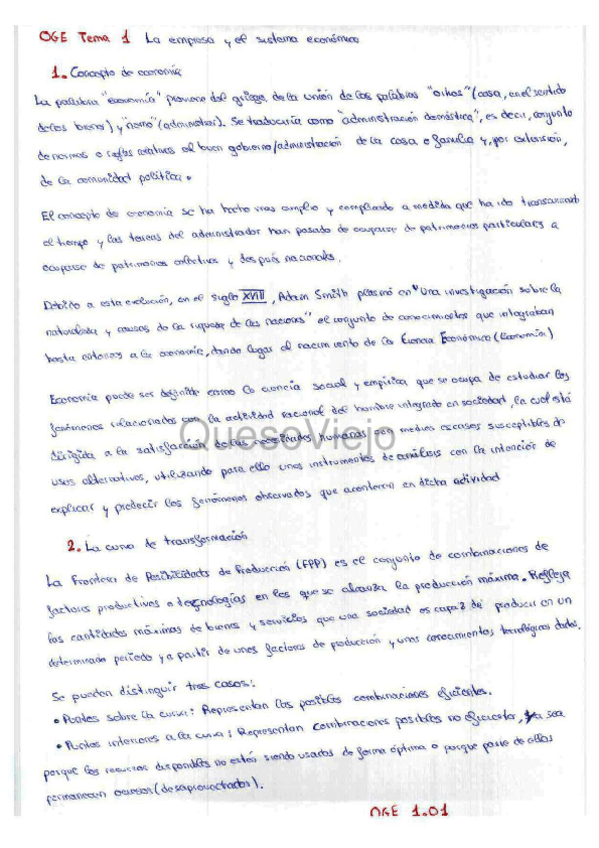 OGE Tema 1 La empresa y el sistema económico
1. Concepto de economía
La palabra "economía" proviene del griego, de la unión de las palabras "oikos" (casa, en el sentido
de los bienes) y "nomo" (administrar). Se traduciría como "administración doméstica", es decir, conjunto
de normas o reglas relativas al buen gobierno/administración de la casa o familia y, por extensión,
de la comunidad política.
El concepto de economía se ha hecho mas amplio y complicado a medida que ha ido transcurriendo
el tiempo y las tareas del administrador han pasado de ocuparse de patrimonios particulares a
ocuparse de patrimonios colectivos y después nacionales.
Debido a esta evolución, en el siglo XVIII, Adam Smith plasmó en "Una investigación sobre la
naturaleza y causas de la riqueza de las naciones" el conjunto de conocimientos que integraban
hasta entonces a la economía, dando lugar al nacimiento de la Ciencia Económica (Economía)
Economía puede ser definida como la ciencia social y empírica que se ocupa de estudiar los
fenómenos relacionados con la actividad racional del hombre integrado en sociedad, la cual está
dirigida a la satisfacción de las necesidades humanas con medios escasos susceptibles de
QuesoViejo
usos alternativos, utilizando para ello unos instrumentos de análisis con la intención de
explicar y predecir los fenómenos observados que acontecen en dicha actividad
2. La curva de transformación
La Frontera de Posibilidades de Producción (FPP) es el conjunto de combinaciones de
factores productivos o tecnologías en los que se alcanza la producción máxima. Refleja
las cantidades máximas de bienes y servicios que una sociedad es capaz de producir en un
determinado periodo y a partir de unos factores de producción y unos conocimientos tecnológicos dados.
Se pueden distinguir tres casos:
• Puntos sobre la curva: Representan las posibles combinaciones eficientes.
• Puntos interiores a la curva: Representan combinaciones posibles no eficientes, ya sea
porque los recursos disponibles no estés siendo usados de forma óptima o porque parte de ellos
permanecen ociosos (desaprovechados).
OGE 1.01